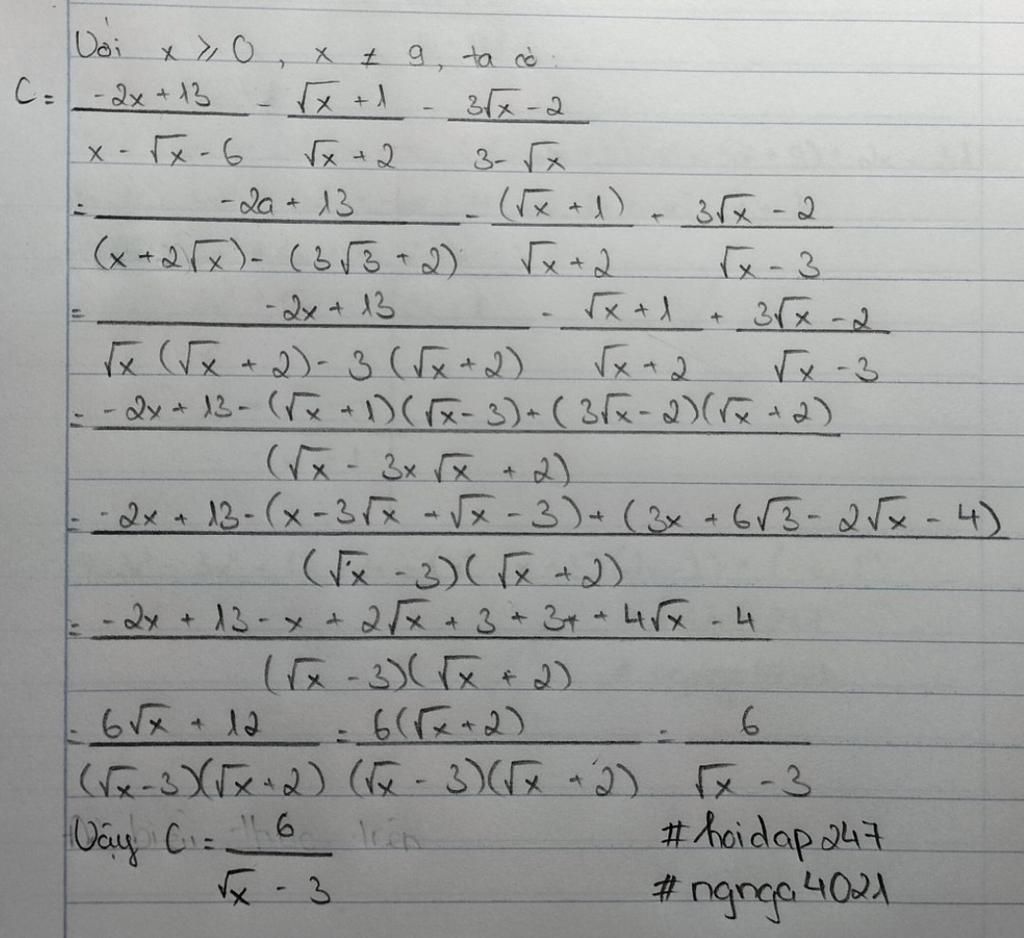 Với x ≥ 0, x ≠ 9, ta có:
C = (-2x + 13)/(x - √x - 6) - (√x + 1)/(√x + 2) - (3√x - 2)/(3 - √x)
= (-2a + 13)/((x + 2√x) - (3√3 + 2)) - (√x + 1)/(√x + 2) + (3√x - 2)/(√x - 3)
= (-2x + 13)/(√x (√x + 2) - 3 (√x + 2)) - (√x + 1)/(√x + 2) + (3√x - 2)/(√x - 3)
= (-2x + 13 - (√x + 1)(√x - 3) + (3√x - 2)(√x + 2))/(√x - 3x √x + 2)
= (-2x + 13 - (x - 3√x + √x - 3) + (3x + 6√3 - 2√x - 4))/((√x - 3)(√x + 2))
= (-2x + 13 - x + 2√x + 3 + 3x + 4√x - 4)/((√x - 3)(√x + 2))
= (6√x + 12)/((√x - 3)(√x + 2)) = 6(√x + 2)/((√x - 3)(√x + 2)) = 6/(√x - 3)
Vậy C = 6/(√x - 3)
#hoidap247
#ngnga4021